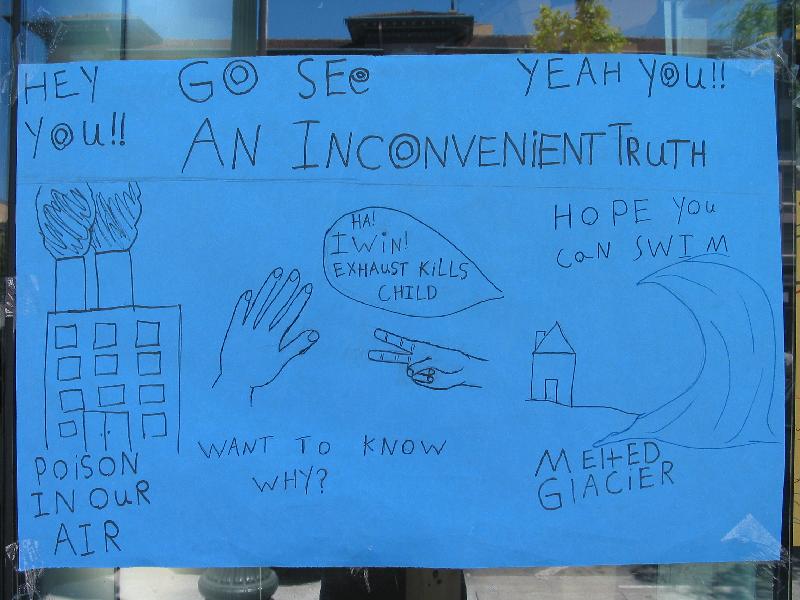 HEY GO SEe YEAH YOU!!
YOU!!
AN INCONVENiENT TRUTH
HA!
I WiN!
EXHAUST KiLLS
CHILD
HOPE YOU
CaN SWIM
WANT TO KNOW
WHY?
POiSON
IN OUR
AIR
MElTED
GLACiER